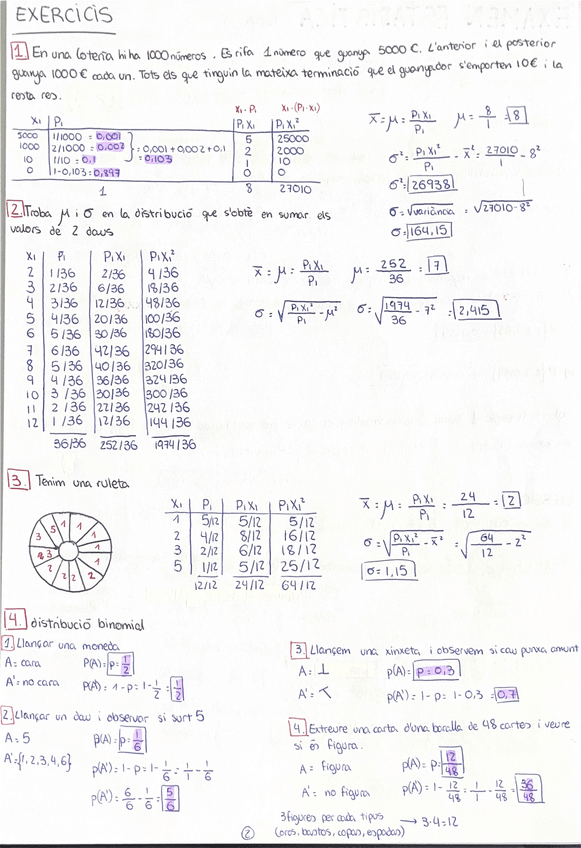 EXERCICIS
1. En una loteria hi ha 1000 números. Es rifa 1 número que guanya 5000 €. L'anterior i el posterior
guanya 1000€ cada un. Tots els que tinguin la mateixa terminació que el guanyador s'emporten 10€ i la
resta res.
x₁·P₁ x₁·(P₁·x₁)
x₁ P₁ P₁x₁ P₁x₁²
5000 1/1000 = 0,001 5 25000
1000 2/1000 = 0,002 = 0,001 + 0,002 + 0,1 2 2000
10 1/10 = 0,1 = 0,103 1 10
0 1-0,103 = 0,897 0 0
1 8 27010
x̄ = μ = P₁x₁/P₁ μ = 8/1 = 8
σ² = P₁x₁²/P₁ - x̄² = 27010/1 - 8²
σ² = 26938
σ = √variància = √27010 - 8²
σ = 164,15
2. Troba μ i σ en la distribució que s'obté en sumar els
valors de 2 daus
x₁ P₁ P₁x₁ P₁x₁²
2 1/36 2/36 4/36
3 2/36 6/36 18/36
4 3/36 12/36 48/36
5 4/36 20/36 100/36
6 5/36 30/36 180/36
7 6/36 42/36 294/36
8 5/36 40/36 320/36
9 4/36 36/36 324/36
10 3/36 30/36 300/36
11 2/36 22/36 242/36
12 1/36 12/36 144/36
36/36 252/36 1974/36
x̄ = μ = P₁x₁/P₁ μ = 252/36 = 7
σ = √P₁x₁²/P₁ - μ² σ = √1974/36 - 7² = 2,415
3. Tenim una ruleta
5 1 1 1 1 1 2 2 2 2 3 3
x₁ P₁ P₁x₁ P₁x₁²
1 5/12 5/12 5/12
2 4/12 8/12 16/12
3 2/12 6/12 18/12
5 1/12 5/12 25/12
12/12 24/12 64/12
x̄ = μ = P₁x₁/P₁ = 24/12 = 2
σ = √P₁x₁²/P₁ - x̄² = √64/12 - 2²
σ = 1,15
4. distribució binomial
1. Llançar una moneda
A = cara P(A) = p = 1/2
A' = no cara P(A') = 1 - p = 1 - 1/2 = 1/2
2. Llançar un dau i observar si surt 5
A = 5 p(A) = p = 1/6
A' = {1,2,3,4,6} p(A') = 1 - p = 1 - 1/6 = 1/1 - 1/6
p(A') = 6/6 - 1/6 = 5/6
3. Llancem una xinxeta i observem si cau punxa amunt
A = ⊥ p(A) = p = 0,3
A' = p(A') = 1 - p = 1 - 0,3 = 0,7
4. Extreure una carta d'una baralla de 48 cartes i veure
si és figura.
A = figura p(A) = p = 12/48
A' = no figura p(A') = 1 - 12/48 = 1/1 - 12/48 = 36/48
3 figures per cada tipus → 3·4 = 12
(oros, bastos, copas, espadas)
2